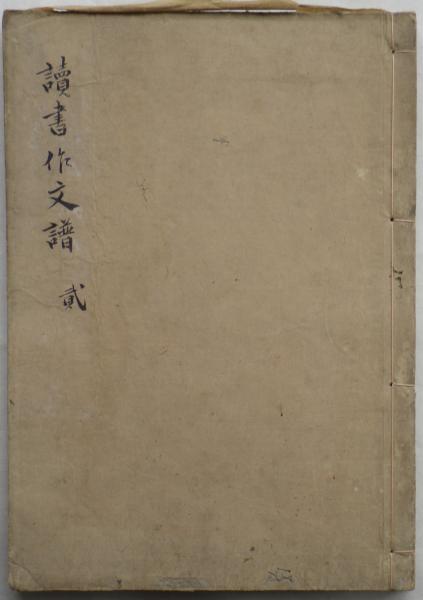 讀書作文譜 貳